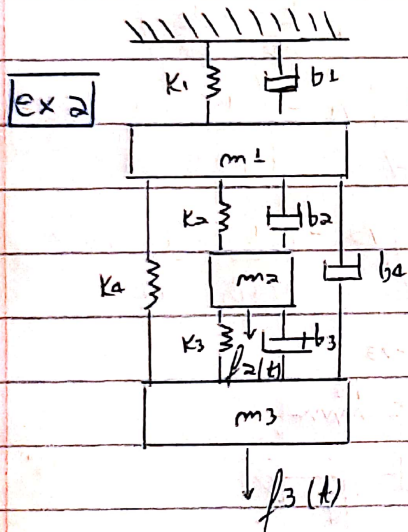 K1 b1
ex 2
m1
K2 b2
K4 m2 b4
K3 b3
f2(t)
m3
f3(t)